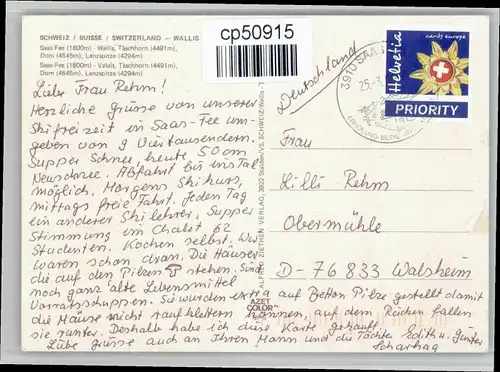 SCHWEIZ / SUISSE / SWITZERLAND – WALLIS
Saas-Fee (1800m) - Wallis, Täschhorn (4491m),
Dom (4545m), Lenzspitze (4294m)
Saas-Fee (1800m) - Valais, Täschhorn (4491m),
Dom (4545m), Lenzspitze (4294m)
cp50915
Deutschland
3910 SAAS
25.-3.
Helvetia
cards europe
PRIORITY
Liebe Frau Rehm!
Herzliche Grüsse von unserer
Skifreizeit in Saas-Fee um-
geben von 9 Viertausendern.
Supper Schnee, heute 50 cm
Neuschnee. Abfahrt bis ins Tal
möglich. Morgens Skikurs,
mittags freie Fahrt. Jeden Tag
ein anderer Skilehrer, Supper
Stimmung im Chalet 62
Studenten. Kochen selbst. Wir
waren schon dran. Die Häuser
die auf den Pilzen stehen. Sind
noch ganz alte Lebensmittel
Vorratsschuppen. Sie wurden extra auf Betton Pilze gestellt damit
die Mäuse nicht raufklettern können, auf dem Rücken fallen
sie runter. Deshalb habe ich diese Karte gekauft.
Liebe grüsse auch an Ihren Mann und die Töchter Edith u. Günter
Scharhag
ALFRED ZIETHEN VERLAG, 3922 Stalden/VS. SCHWEIZ/Wallis
AZET
COLOR
Frau
Lilli Rehm
Obermühle
D-76833 Walsheim